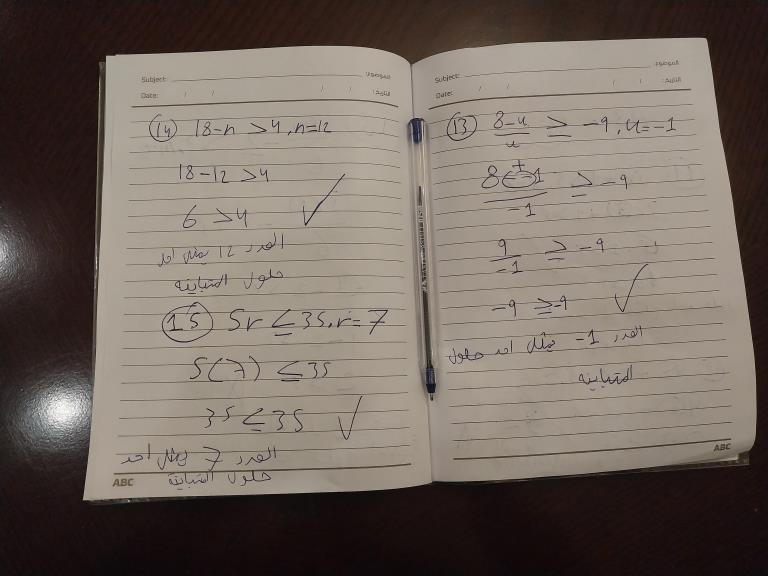 Subject: الموضوع:
Date: / / / / التاريخ:
(13) 8-u/u ≥ -9, u=-1
8--1/-1 ≥ -9
+
9/-1 ≥ -9
-9 ≥ -9 ✓
العدد 1- يمثل احد حلول
المتباينة
ABC
Subject: الموضوع:
Date: / / / / التاريخ:
(14) 18-n >4, n=12
18-12 >4
6 >4 ✓
العدد 12 يمثل احد
حلول المتباينة
(15) 5r ≤ 35, r=7
5(7) ≤ 35
35 ≤ 35 ✓
العدد 7 يمثل احد
حلول المتباينة
ABC